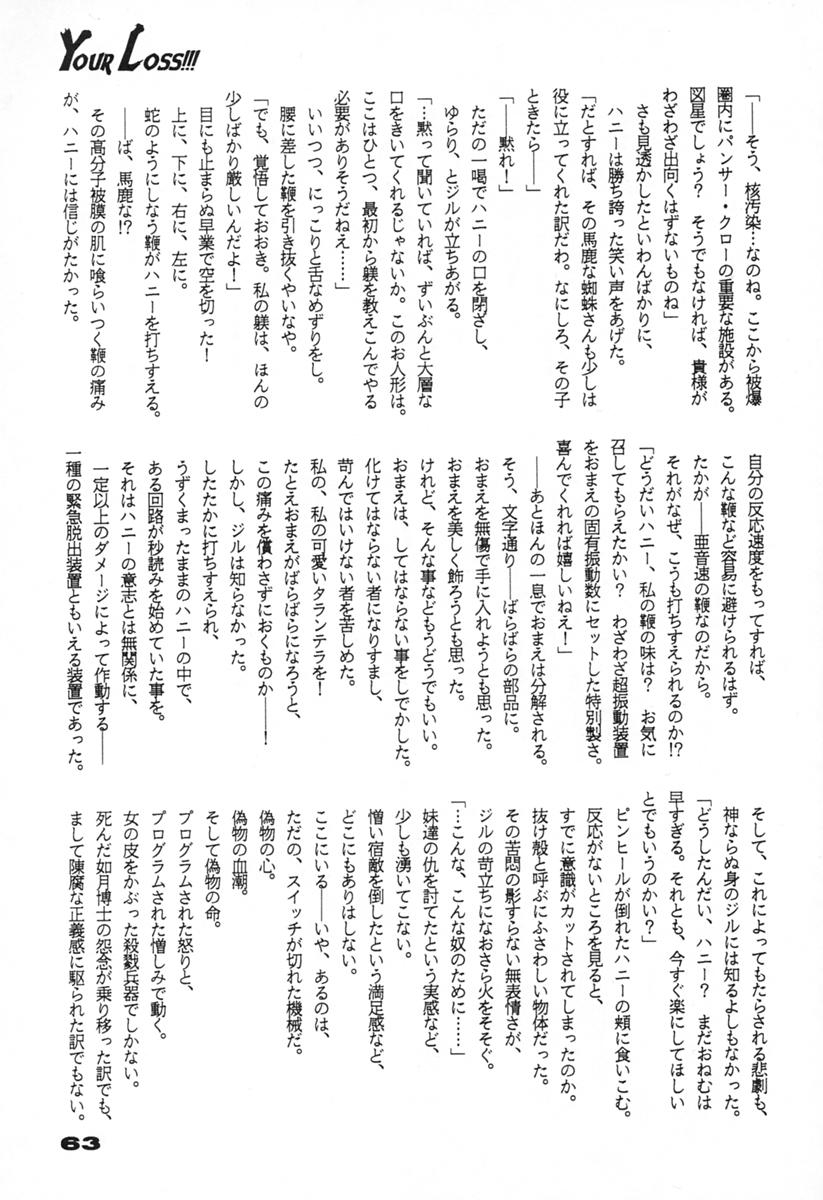 YOUR LOSS!!!
「――そう、核汚染…なのね。ここから被爆
圏内にパンサー・クローの重要な施設がある。
図星でしょう？　そうでもなければ、貴様が
わざわざ出向くはずないものね」
さも見透かしたといわんばかりに、
ハニーは勝ち誇った笑い声をあげた。
「だとすれば、その馬鹿な蜘蛛さんも少しは
役に立ってくれた訳だわ。なにしろ、その子
ときたら――」
「――黙れ！」
ただの一喝でハニーの口を閉ざし、
ゆらり、とジルが立ちあがる。
「…黙って聞いていれば、ずいぶんと大層な
口をきいてくれるじゃないか。このお人形は。
ここはひとつ、最初から躾を教えこんでやる
必要がありそうだねえ……」
いいつつ、にっこりと舌なめずりをし。
腰に差した鞭を引き抜くやいなや。
「でも、覚悟しておおき。私の躾は、ほんの
少しばかり厳しいんだよ！」
目にも止まらぬ早業で空を切った！
上に、下に、右に、左に。
蛇のようにしなう鞭がハニーを打ちすえる。
――ば、馬鹿な!?
その高分子被膜の肌に喰らいつく鞭の痛み
が、ハニーには信じがたかった。
自分の反応速度をもってすれば、
こんな鞭など容易に避けられるはず。
たかが――亜音速の鞭なのだから。
それがなぜ、こうも打ちすえられるのか!?
「どうだいハニー、私の鞭の味は？　お気に
召してもらえたかい？　わざわざ超振動装置
をおまえの固有振動数にセットした特別製さ。
喜んでくれれば嬉しいねえ！」
――あとほんの一息でおまえは分解される。
そう、文字通り――ばらばらの部品に。
おまえを無傷で手に入れようとも思った。
おまえを美しく飾ろうとも思った。
けれど、そんな事などもうどうでもいい。
おまえは、してはならない事をしでかした。
化けてはならない者になりすまし、
苛んではいけない者を苦しめた。
私の、私の可愛いタランテラを！
たとえおまえがばらばらになろうと、
この痛みを償わさずにおくものか――！
しかし、ジルは知らなかった。
したたかに打ちすえられ、
うずくまったままのハニーの中で、
ある回路が秒読みを始めていた事を。
それはハニーの意志とは無関係に、
一定以上のダメージによって作動する――
一種の緊急脱出装置ともいえる装置であった。
そして、これによってもたらされる悲劇も、
神ならぬ身のジルには知るよしもなかった。
「どうしたんだい、ハニー？　まだおねむは
早すぎる。それとも、今すぐ楽にしてほしい
とでもいうのかい？」
ピンヒールが倒れたハニーの頬に食いこむ。
反応がないところを見ると、
すでに意識がカットされてしまったのか。
抜け殻と呼ぶにふさわしい物体だった。
その苦悶の影すらない無表情さが、
ジルの苛立ちになおさら火をそそぐ。
「…こんな、こんな奴のために……」
妹達の仇を討てたという実感など、
少しも湧いてこない。
憎い宿敵を倒したという満足感など、
どこにもありはしない。
ここにいる――いや、あるのは、
ただの、スイッチが切れた機械だ。
偽物の心。
偽物の血潮。
そして偽物の命。
プログラムされた怒りと、
プログラムされた憎しみで動く。
女の皮をかぶった殺戮兵器でしかない。
死んだ如月博士の怨念が乗り移った訳でも、
まして陳腐な正義感に駆られた訳でもない。
63